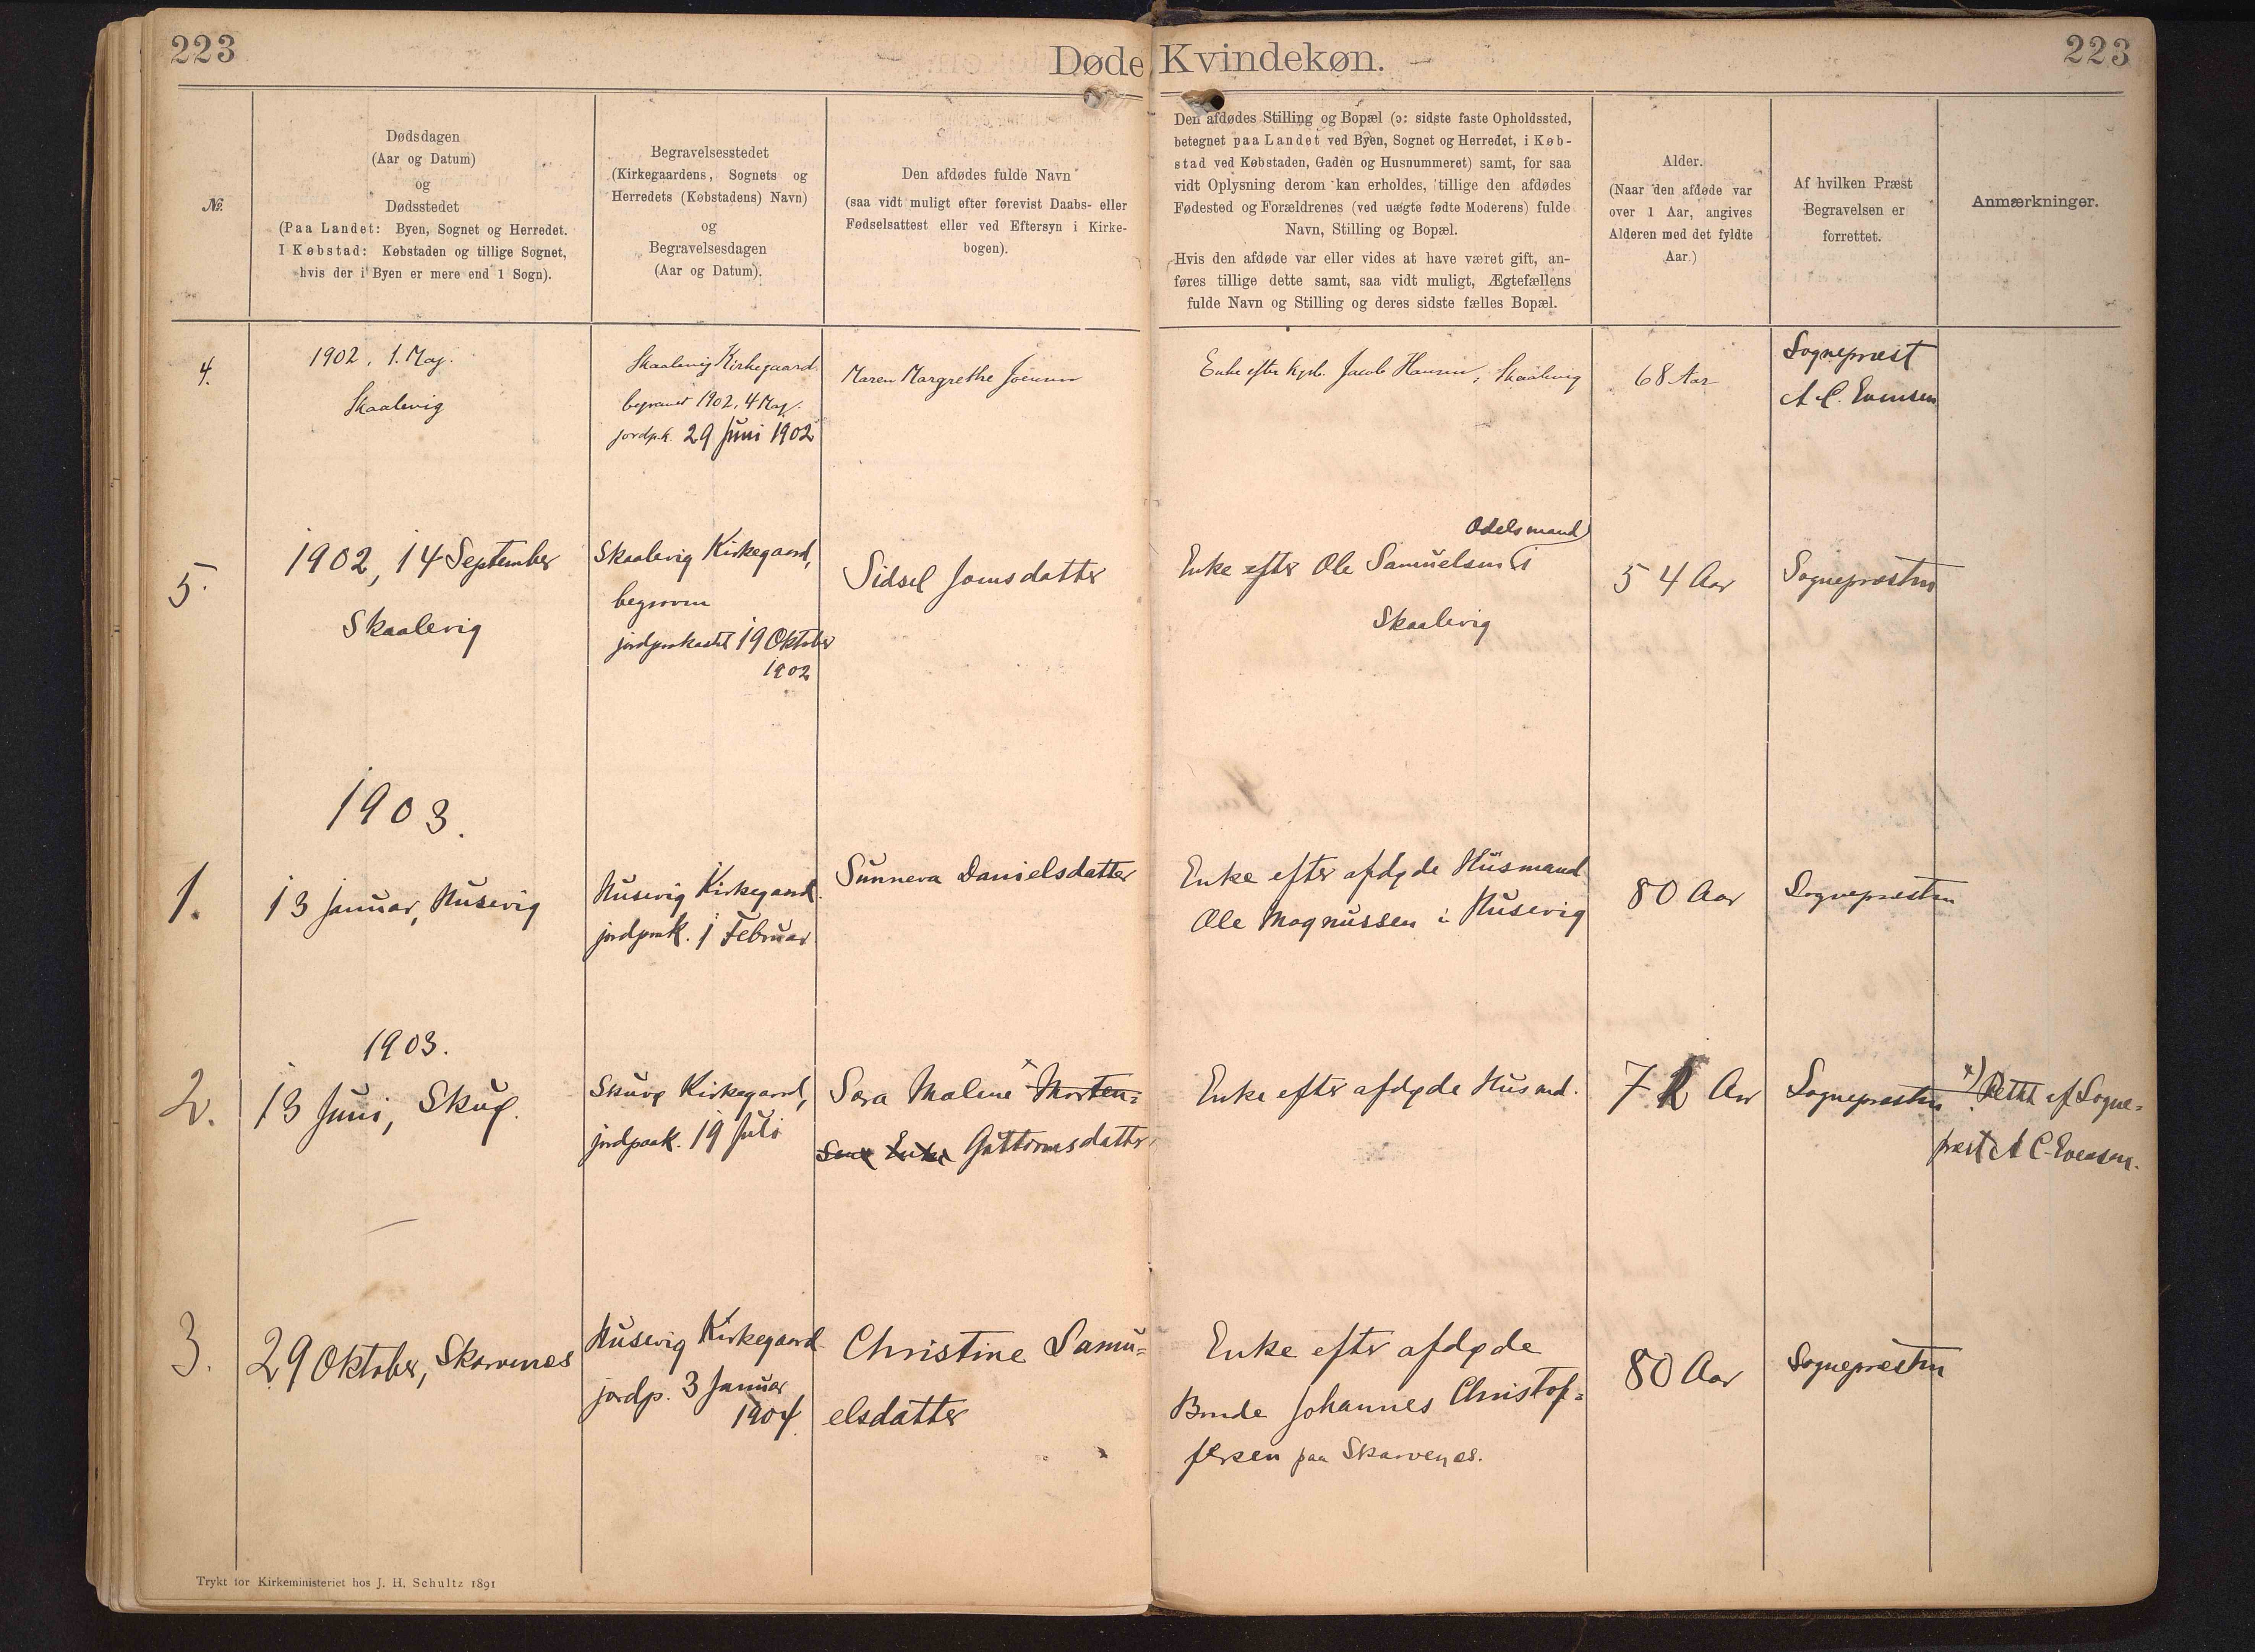 223
Døde Kvindekøn.
223
№
Dødsdagen
(Aar og Datum)
og
Dødsstedet
(Paa Landet: Byen, Sognet og Herredet.
I Købstad: Købstaden og tillige Sognet,
hvis der i Byen er mere end 1 Sogn).
Begravelsesstedet
(Kirkegaardens, Sognets og
Herredets (Købstadens) Navn)
og
Begravelsesdagen
(Aar og Datum).
Den afdødes fulde Navn
(saa vidt muligt efter forevist Daabs- eller
Fødselsattest eller ved Eftersyn i Kirke-
bogen).
Den afdødes Stilling og Bopæl (ɔ: sidste faste Opholdssted,
betegnet paa Landet ved Byen, Sognet og Herredet, i Køb-
stad ved Købstaden, Gaden og Husnummeret) samt, for saa
vidt Oplysning derom kan erholdes, tillige den afdødes
Fødested og Forældrenes (ved uægte fødte Moderens) fulde
Navn, Stilling og Bopæl.
Hvis den afdøde var eller vides at have været gift, an-
føres tillige dette samt, saa vidt muligt, Ægtefællens
fulde Navn og Stilling og deres sidste fælles Bopæl.
Alder.
(Naar den afdøde var
over 1 Aar, angives
Alderen med det fyldte
Aar.)
Af hvilken Præst
Begravelsen er
forrettet.
Anmærkninger.
4.
1902, 1. Maj.
Skaalevig
Skaalevig Kirkegaard.
begravet 1902, 4 Maj.
jordp.k. 29 Juni 1902
Maren Margrethe Joensen
Enke efter Jacob Hansen, Skaalevig
68 Aar
Sognepræst
A. C. Evensen
5.
1902, 14 September
Skaalevig
Skaalevig Kirkegaard,
begraven
jordpaakastet 19 Oktober
1902
Sidsel Joensdatter
Odelsmand
Enke efter Ole Samuelsen i
Skaalevig
54 Aar
Sognepræsten
1903.
1.
13 Januar, Husevig
Husevig Kirkegaard.
jordpaak. 1 Februar
Sunneva Danielsdatter
Enke efter afdøde Husmand
Ole Magnussen i Husevig
80 Aar
Sognepræsten
1903.
2.
13 Juni, Skuø.
Skuø Kirkegaard,
jordpaak. 19 Juli
Sara Malene x Morten=
sens Enke Guttormsdatter
Enke efter afdøde Husmd.
72 Aar
Sognepræsten
x) Rettet af Sogne=
præst A C. Evensen.
3.
29 Oktober, Skarvenes
Husevig Kirkegaard.
jordp. 3 Januar
1904.
Christine Samu=
elsdatter
Enke efter afdøde
Bonde Johannes Christof=
fersen paa Skarvenes.
80 Aar
Sognepræsten
Trykt for Kirkeministeriet hos J. H. Schultz 1891